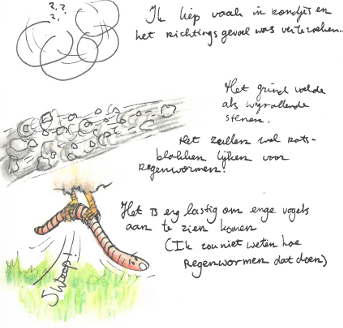 ?
? ?
?
Ik liep vaak in rondjes en
het richtingsgevoel was verdwenen.
Het grind voelde
als wegrollende
stenen.
Het zullen wel rots-
blokken lijken voor
regenwormen!
Het is erg lastig om enge vogels
aan te zien komen
(Ik zou niet weten hoe
regenwormen dat doen)
Swoop!